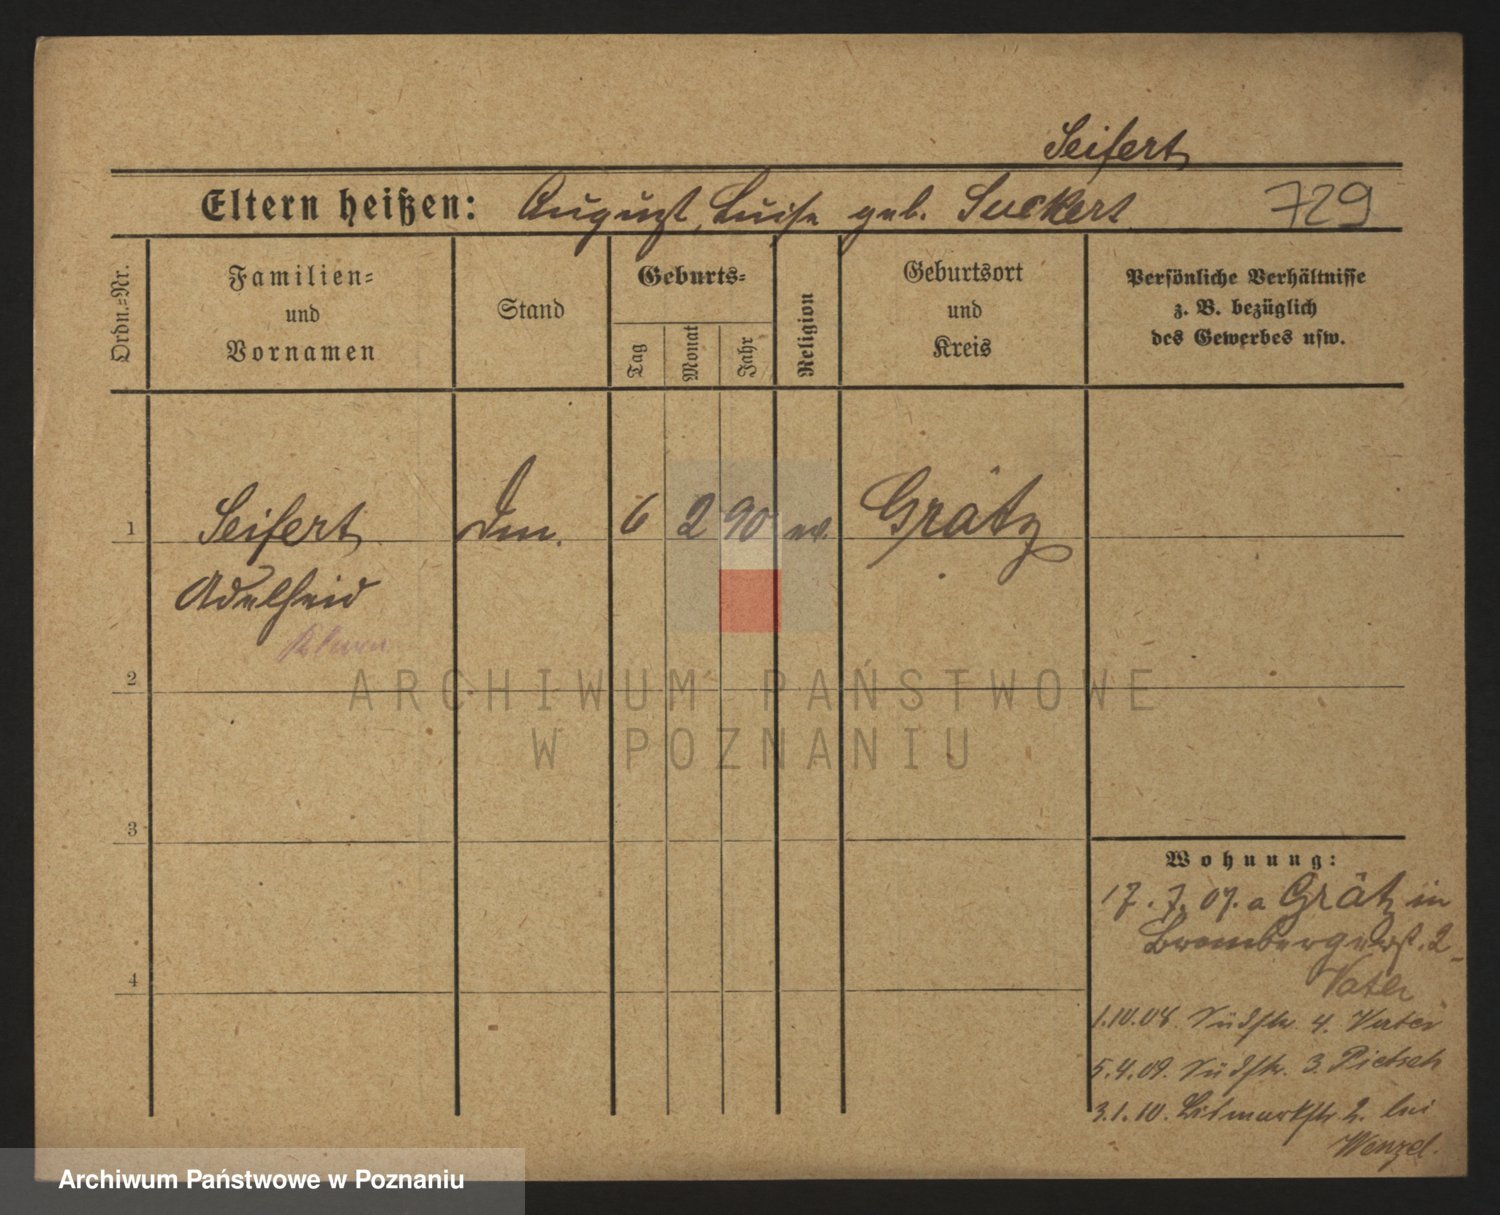 Seifert
Eltern heißen: August, Luise geb. Suckert
729
Ordn.-Nr.
Familien-
und
Vornamen
Stand
Geburts-
Tag
Monat
Jahr
Religion
Geburtsort
und
Kreis
Persönliche Verhältnisse
z. B. bezüglich
des Gewerbes usw.
1 Seifert 6 2 90 ev. Grätz
Adelheid
2
3
4
Wohnung:
17. 7. 07. a Grätz in
Brombergerst. 2
Vater
1.10.08. Südstr. 4. Vater
5.4.09. Südstr. 3. Pietsch
3.1.10. Bismarkstr. 2. bei
Wenzel.
ARCHIWUM PAŃSTWOWE
W POZNANIU
Archiwum Państwowe w Poznaniu